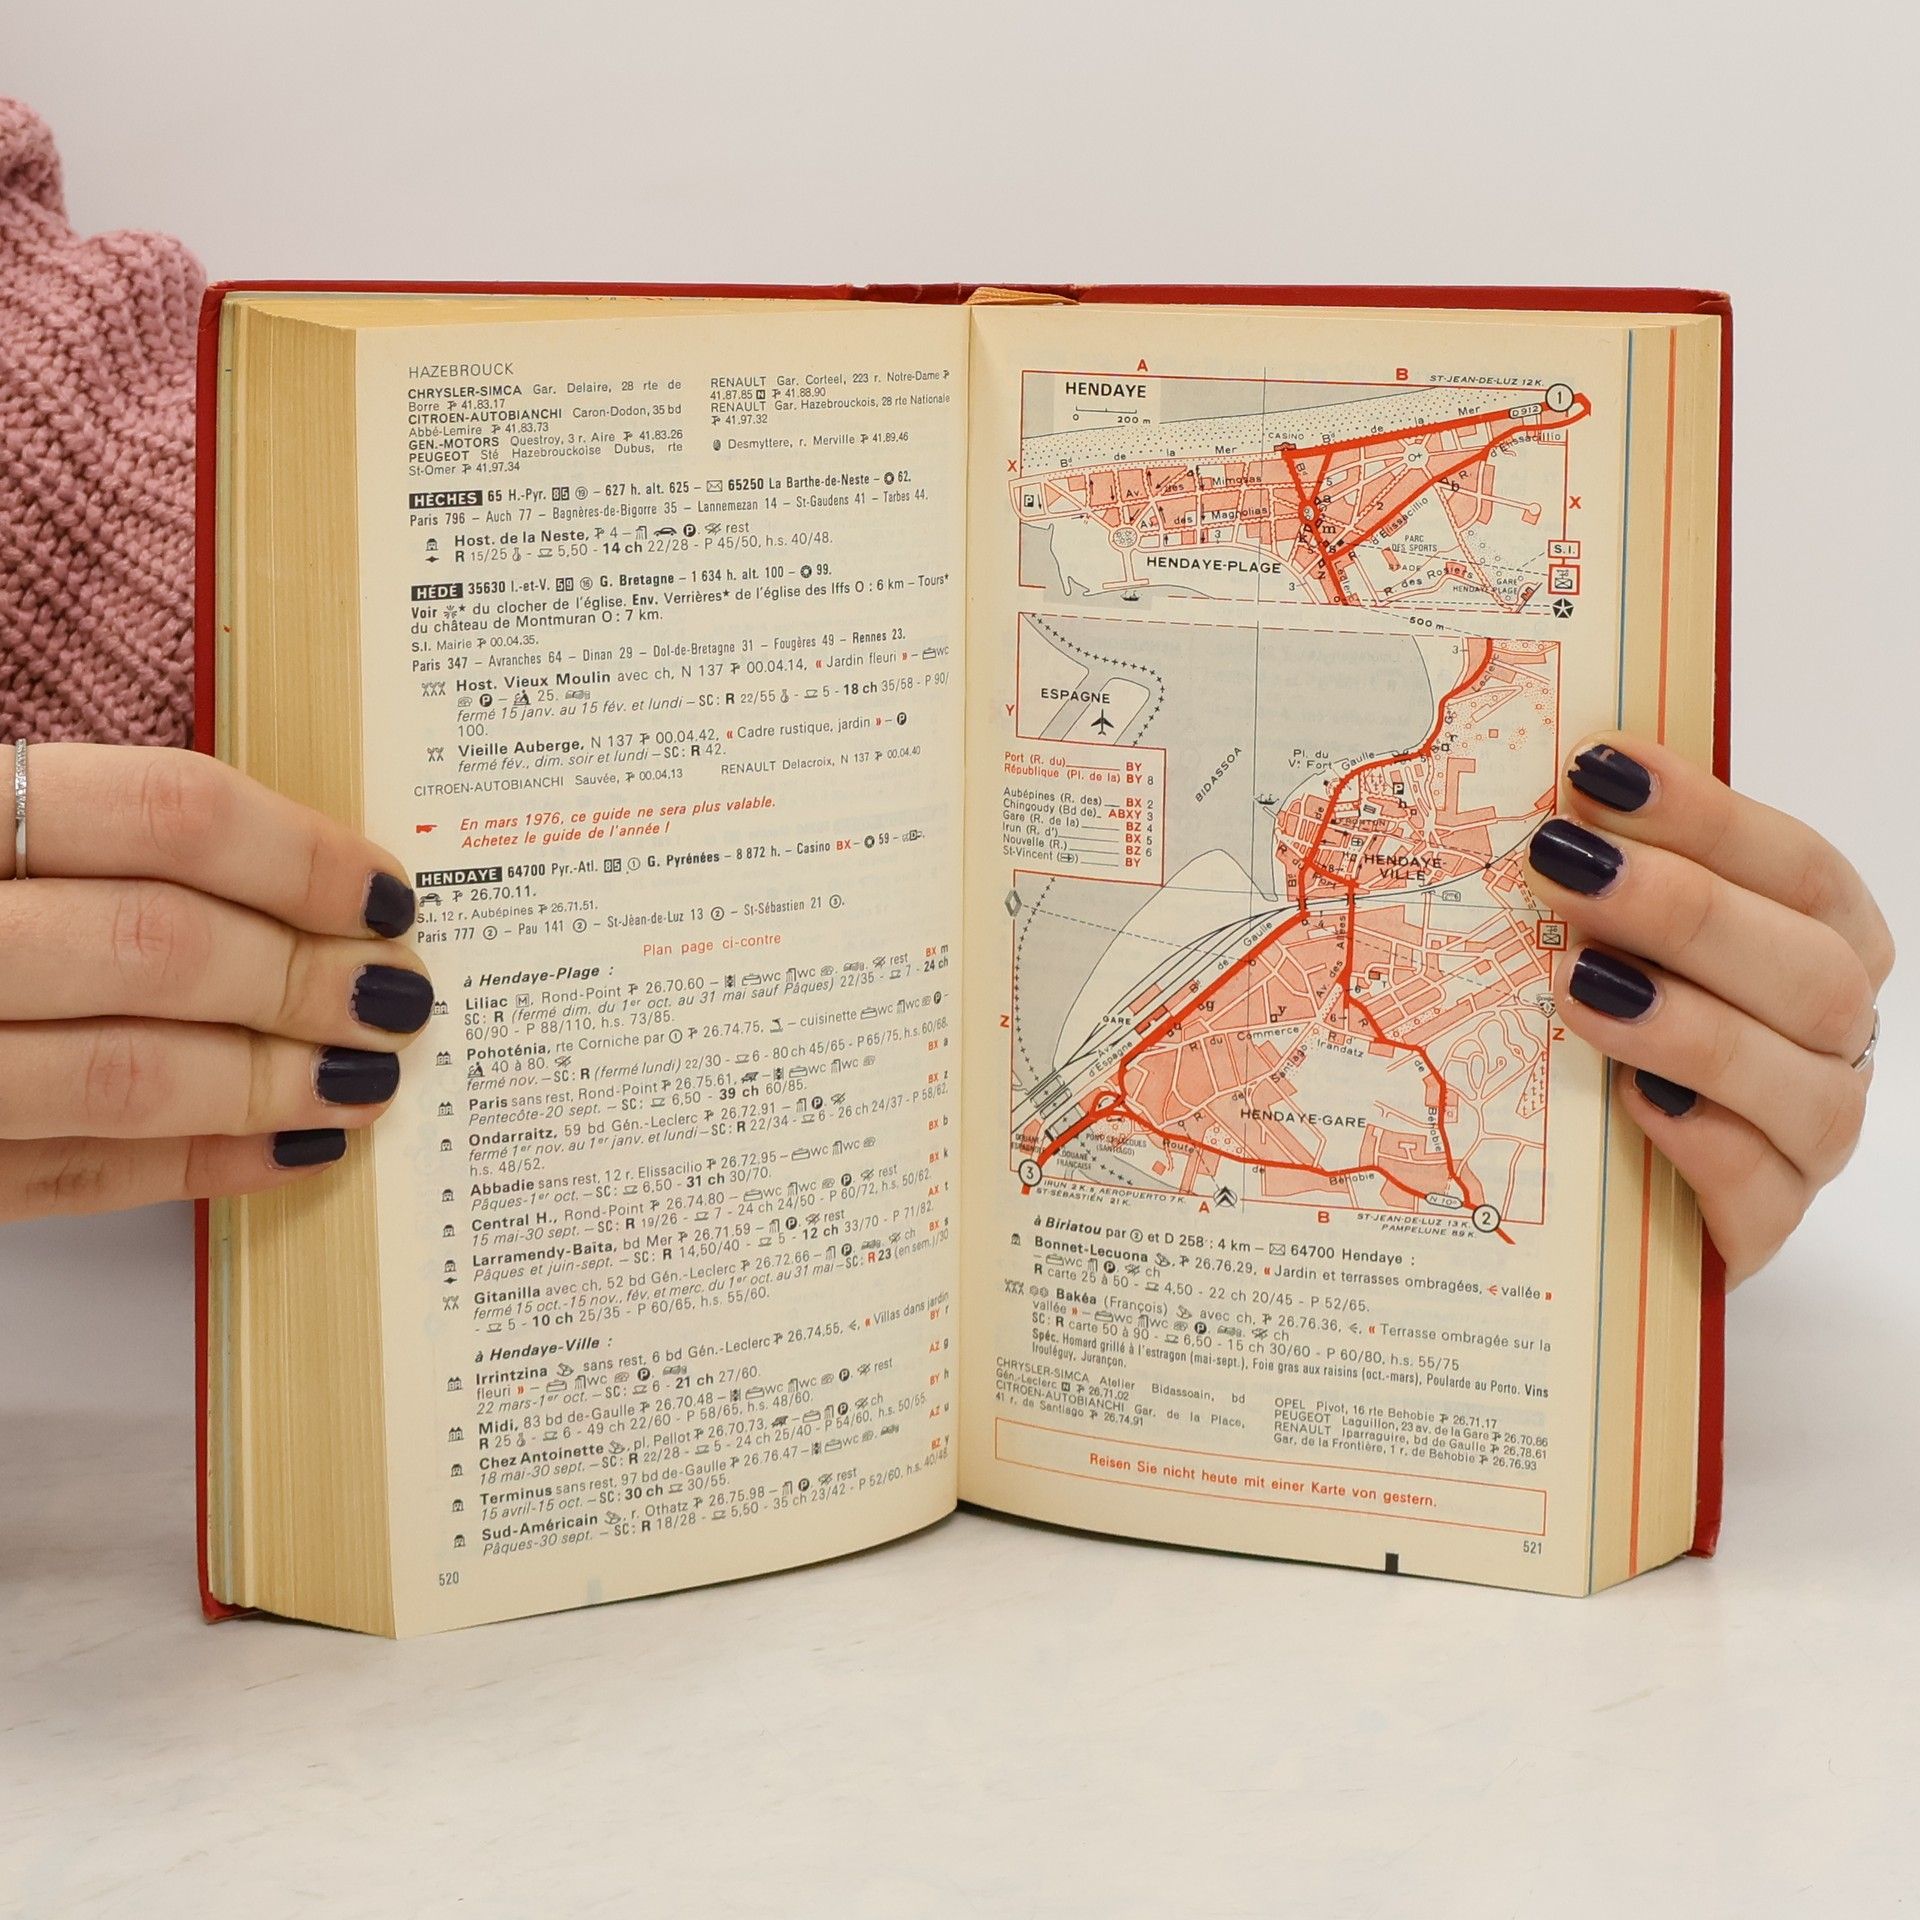 HAZEBROUCK
CHRYSLER-SIMCA Gar. Delaire, 28 rte de
Borre 41.83.17
CITROEN-AUTOBIANCHI Caron-Dodon, 35 bd
Abbé-Lemire 41.83.73
GEN.-MOTORS Questroy, 3 r. Aire 41.83.26
PEUGEOT Sté Hazebrouckoise Dubus, rte
St-Omer 41.97.34
RENAULT Gar. Corteel, 223 r. Notre-Dame
41.87.85 N 41.88.90
RENAULT Gar. Hazebrouckois, 28 rte Nationale
41.97.32
Desmyttere, r. Merville 41.89.46
HÈCHES 65 H.-Pyr. 85 19 – 627 h. alt. 625 – 65250 La Barthe-de-Neste – 62.
Paris 796 – Auch 77 – Bagnères-de-Bigorre 35 – Lannemezan 14 – St-Gaudens 41 – Tarbes 44.
Host. de la Neste, 4 – P rest
R 15/25 - 5,50 - 14 ch 22/28 - P 45/50, h.s. 40/48.
HÉDÉ 35630 I.-et-V. 59 16 G. Bretagne – 1 634 h. alt. 100 – 99.
Voir * du clocher de l'église. Env. Verrières* de l'église des Iffs O : 6 km – Tours*
du château de Montmuran O : 7 km.
S.I. Mairie 00.04.35.
Paris 347 – Avranches 64 – Dinan 29 – Dol-de-Bretagne 31 – Fougères 49 – Rennes 23.
Host. Vieux Moulin avec ch, N 137 00.04.14, « Jardin fleuri » – wc
P – 25.
fermé 15 janv. au 15 fév. et lundi – SC : R 22/55 - 5 - 18 ch 35/58 - P 90/
100.
Vieille Auberge, N 137 00.04.42, « Cadre rustique, jardin » – P
fermé fév., dim. soir et lundi – SC : R 42.
CITROEN-AUTOBIANCHI Sauvée, 00.04.13 RENAULT Delacroix, N 137 00.04.40
En mars 1976, ce guide ne sera plus valable.
Achetez le guide de l'année !
HENDAYE 64700 Pyr.-Atl. 85 1 G. Pyrénées – 8 872 h. – Casino BX – 59 –
26.70.11.
S.I. 12 r. Aubépines 26.71.51.
Paris 777 2 – Pau 141 2 – St-Jean-de-Luz 13 2 – St-Sébastien 21 3.
Plan page ci-contre
à Hendaye-Plage :
Liliac M, Rond-Point 26.70.60 – wc wc rest BX m
SC : R (fermé dim. du 1er oct. au 31 mai sauf Pâques) 22/35 - 7 - 24 ch
60/90 - P 88/110, h.s. 73/85.
Pohoténia, rte Corniche par 1 26.74.75, – cuisinette wc wc P –
40 à 80.
fermé nov. – SC : R (fermé lundi) 22/30 - 6 - 80 ch 45/65 - P 65/75, h.s. 60/68.
Paris sans rest, Rond-Point 26.75.61, – wc wc BX a
Pentecôte-20 sept. – SC : 6,50 - 39 ch 60/85.
Ondarraitz, 59 bd Gén.-Leclerc 26.72.91 – P BX z
fermé 1er nov. au 1er janv. et lundi – SC : R 22/34 - 6 - 26 ch 24/37 - P 58/62,
h.s. 48/52.
Abbadie sans rest, 12 r. Elissacilio 26.72.95 – wc wc BX b
Pâques-1er oct. – SC : 6,50 - 31 ch 30/70.
Central H., Rond-Point 26.74.80 – wc wc P. rest BX k
15 mai-30 sept. – SC : R 19/26 - 7 - 24 ch 24/50 - P 60/72, h.s. 50/62.
Larramendy-Baïta, bd Mer 26.71.59 – P. rest AX t
Pâques et juin-sept. – SC : R 14,50/40 - 5 - 12 ch 33/70 - P 71/82.
Gitanilla avec ch, 52 bd Gén.-Leclerc 26.72.66 – P. ch BX s
fermé 15 oct.-15 nov., fév. et merc. du 1er oct. au 31 mai – SC : R 23 (en sem.)/30
- 5 - 10 ch 25/35 - P 60/65, h.s. 55/60.
à Hendaye-Ville :
Irrintzina sans rest, 6 bd Gén.-Leclerc 26.74.55, « Villas dans jardin
fleuri » – wc P. BY r
22 mars-1er oct. – SC : 6 - 21 ch 27/60.
Midi, 83 bd de-Gaulle 26.70.48 – wc wc P. rest AZ g
R 25 - 6 - 49 ch 22/60 - P 58/65, h.s. 48/60.
Chez Antoinette, pl. Pellot 26.70.73, – P. ch BY h
18 mai-30 sept. – SC : R 22/28 - 5 - 24 ch 25/40 - P 54/60, h.s. 50/55.
Terminus sans rest, 97 bd de-Gaulle 26.76.47 – wc AZ u
15 avril-15 oct. – SC : 30 ch 30/55.
Sud-Américain, r. Othatz 26.75.98 – P. rest BZ y
Pâques-30 sept. – SC : R 18/28 - 5,50 - 35 ch 23/42 - P 52/60, h.s. 40/48.
520
A B
ST-JEAN-DE-LUZ 12 K.
HENDAYE
0 200 m
1
D 912
CASINO
Bd de la Mer
Bd de la Mer
R. d'Elissacilio
X
P
Av. des Mimosas
Av. des Magnolias
X
m
PARC
DES SPORTS
STADE
HENDAYE-PLAGE
R. des Rosiers
GARE
HENDAYE PLAGE
S.I.
500 m
ESPAGNE
Y
BIDASSOA
Pl. du
Vx Fort
Port (R. du) BY
République (Pl. de la) BY 8
Aubépines (R. des) BX 2
Chingoudy (Bd de) ABXY 3
Gare (R. de la) BZ 4
Irun (R. d') BX 5
Nouvelle (R.) BZ 6
St-Vincent BY
FRONTON
HENDAYE-
VILLE
Bd de Gaulle
Av. des Allées
GARE
Av. d'Espagne
R. du Commerce
Santiago
Irandatz
Z
Z
R. de Béhobie
HENDAYE-GARE
PONT ST-JACQUES
(SANTIAGO)
DOUANE
ESPAGNOLE
DOUANE
FRANÇAISE
Route de Béhobie
3
IRUN 2 K. AEROPUERTO 7 K.
ST-SÉBASTIEN 21 K.
A B
N 10
2
ST-JEAN-DE-LUZ 13 K.
PAMPELUNE 89 K.
à Biriatou par 2 et D 258 : 4 km – 64700 Hendaye :
Bonnet-Lecuona, 26.76.29, « Jardin et terrasses ombragées, vallée »
– wc P. ch
R carte 25 à 50 - 4,50 - 22 ch 20/45 - P 52/65.
Bakéa (François) avec ch, 26.76.36, « Terrasse ombragée sur la
vallée » – wc wc P. ch
SC : R carte 50 à 90 - 6,50 - 15 ch 30/60 - P 60/80, h.s. 55/75
Spéc. Homard grillé à l'estragon (mai-sept.), Foie gras aux raisins (oct.-mars), Poularde au Porto. Vins
Irouléguy, Jurançon.
CHRYSLER-SIMCA Atelier Bidassoain, bd
Gén.-Leclerc N 26.71.02
CITROEN-AUTOBIANCHI Gar. de la Place,
41 r. de Santiago 26.74.91
OPEL Pivot, 16 rte Behobie 26.71.17
PEUGEOT Laguillon, 23 av. de la Gare 26.70.86
RENAULT Iparraguire, bd de Gaulle 26.78.61
Gar. de la Frontière, 1 r. de Behobie 26.76.93
Reisen Sie nicht heute mit einer Karte von gestern.
521